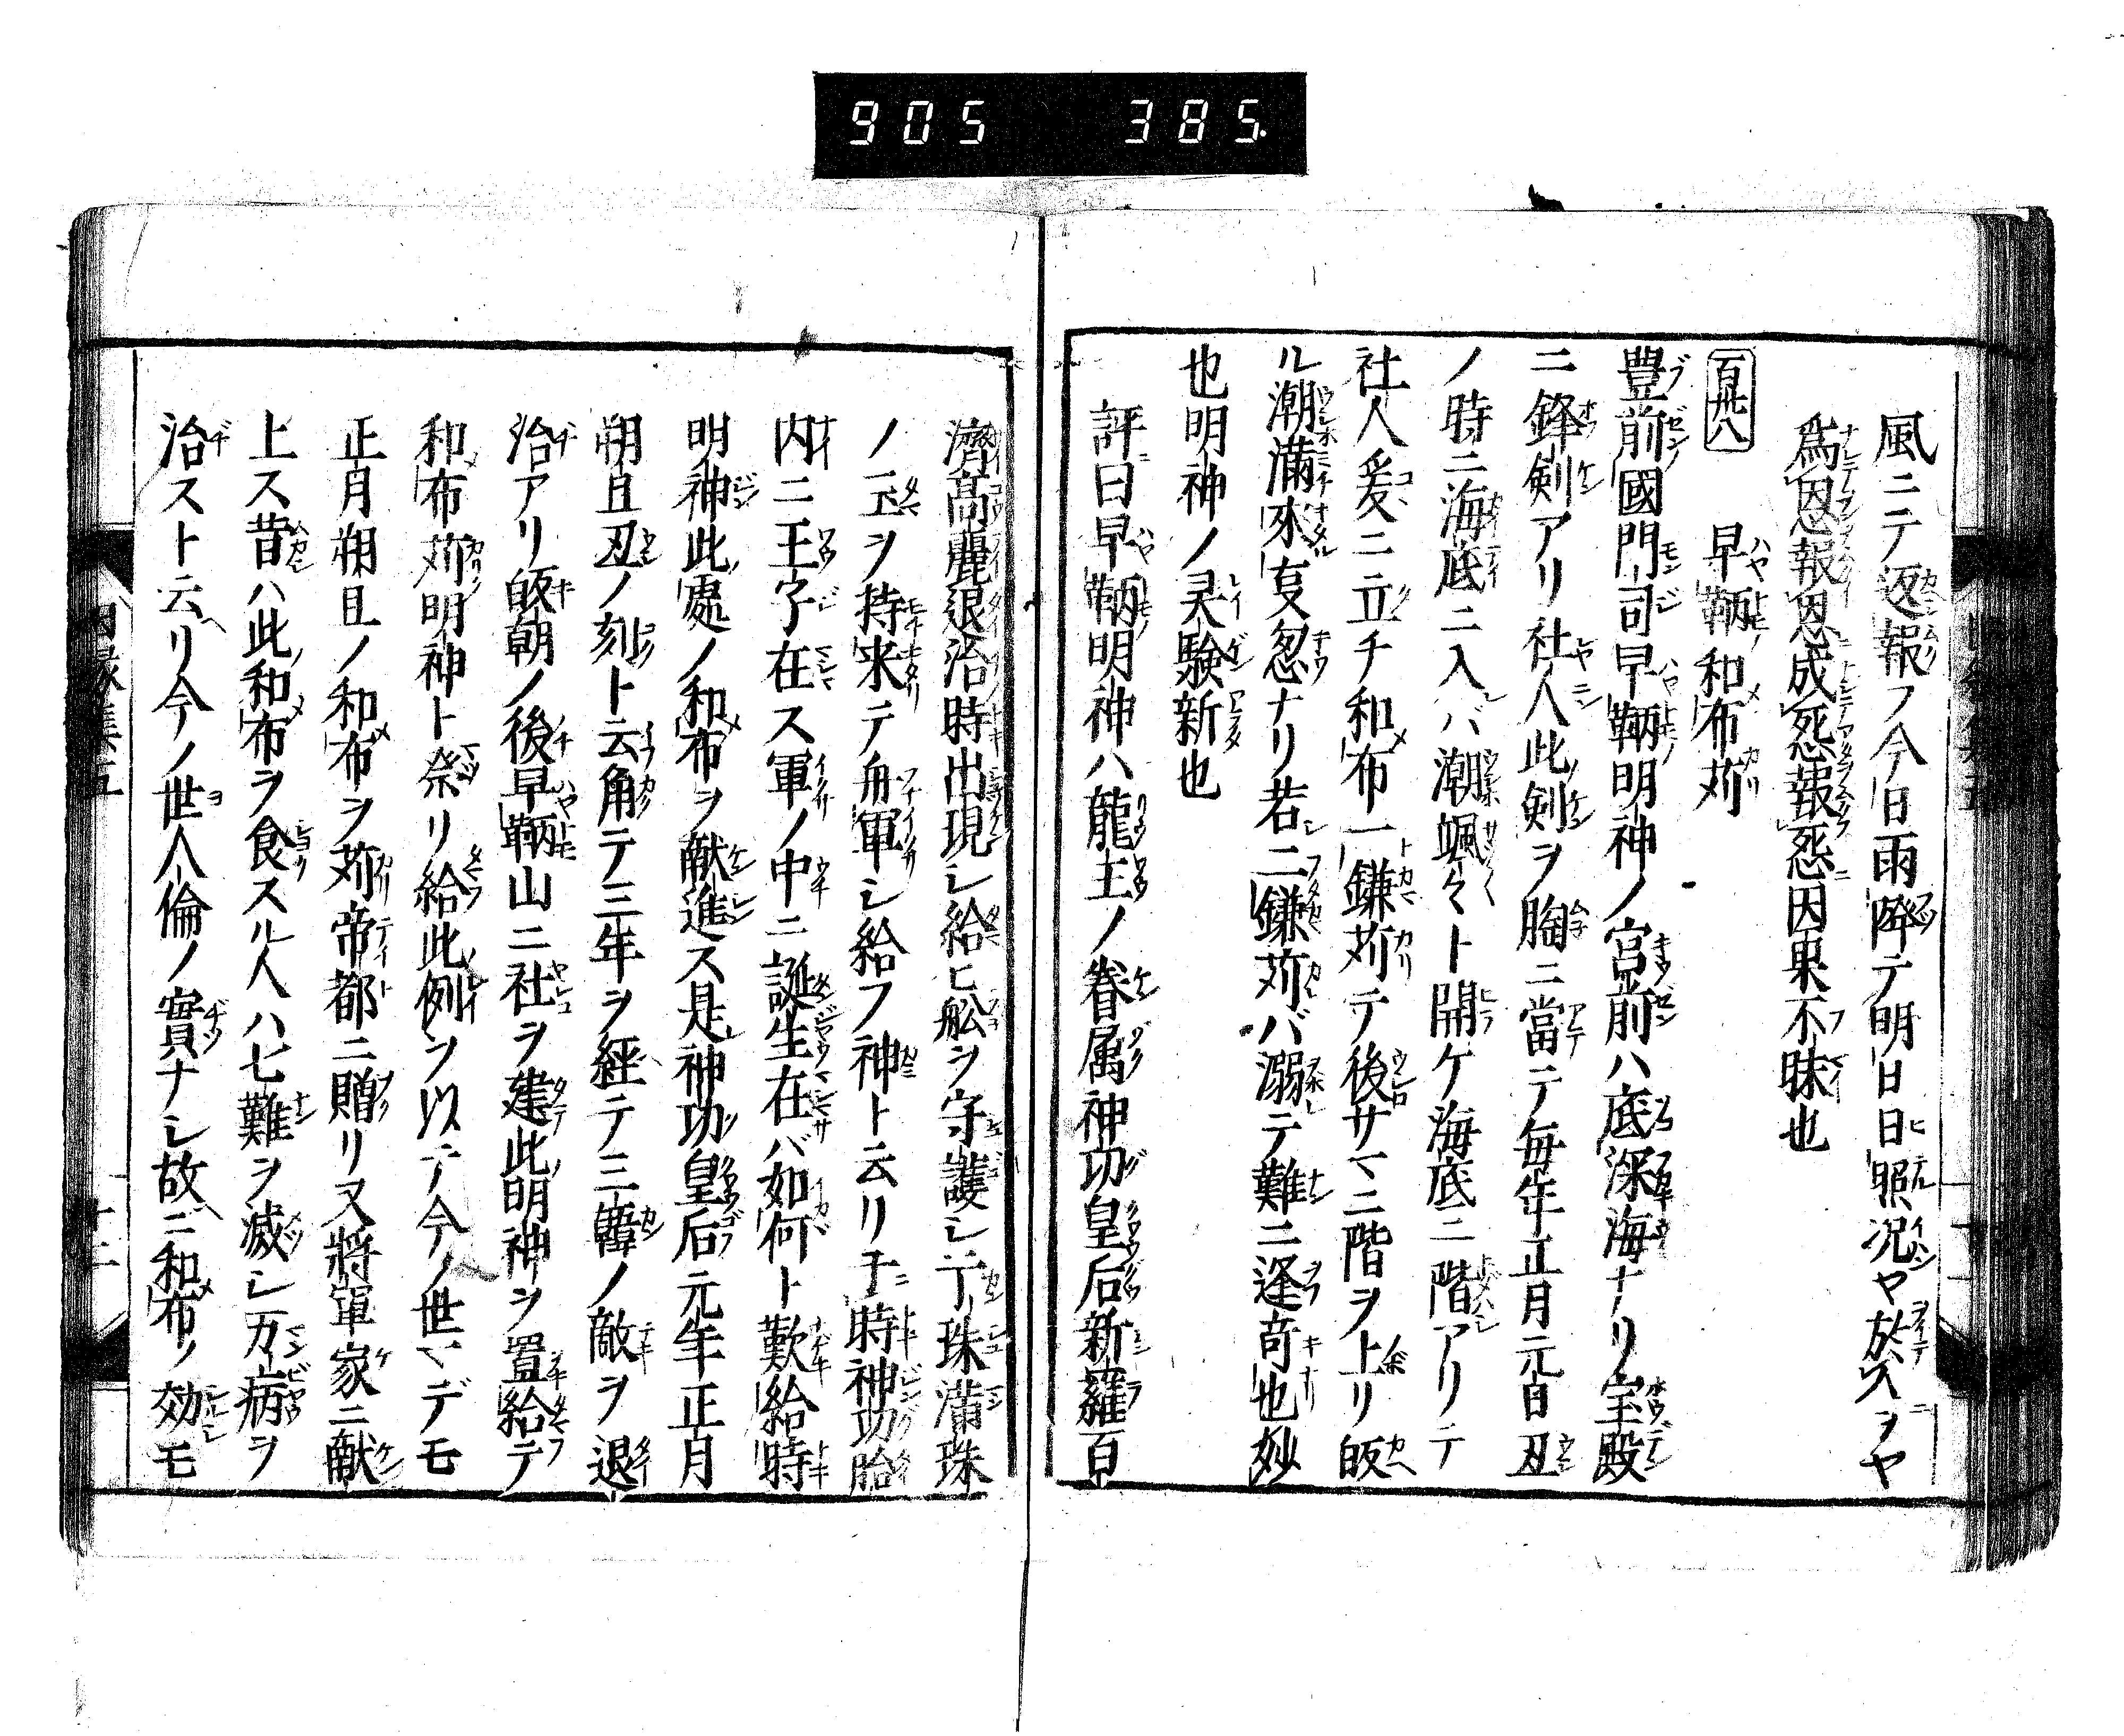 905 385.
風ニテ返報フ今日雨降テ明日日照況ヤ於人ヲヤ
為恩報恩成怨報怨因果不昧也
百卅八 早鞆和布苅
豊前國門司早鞆明神ノ宮前ハ底深海ナリ宝殿
ニ鋒剣アリ社人此剣ヲ胸ニ當テ毎年正月元日丑
ノ時ニ海底ニ入バ潮颯々ト開ケ海底ニ階アリテ
社人爰ニ立チ和布一鎌苅テ後サマニ階ヲ上リ皈
ル潮満来ル夏急ナリ若二鎌苅バ溺テ難ニ逢竒也妙
也明神ノ灵驗新也
評曰早鞆明神ハ龍王ノ眷属神功皇后新羅百
濟高麗退治時出現シ給ヒ舩ヲ守護シ干珠満珠
ノ二ヲ持来テ舟軍シ給フ神ト云リ于時神功胎
内ニ王子在ス軍ノ中ニ誕生在バ如何ト歎給時
明神此處ノ和布ヲ献進ス是神功皇后元年正月
朔旦丑ノ刻ト云角テ三年ヲ経テ三韓ノ敵ヲ退
治アリ皈朝ノ後早鞆山ニ社ヲ建此明神ヲ置給テ
和布苅明神ト祭リ給此例ヲ以テ今ノ世マデモ
正月朔旦ノ和布ヲ苅帝都ニ贈リ又將軍家ニ献
上ス昔ハ此和布ヲ食スル人ハ七難ヲ滅シ万病ヲ
治スト云リ今ノ世人倫ノ實ナシ故ニ和布ノ効モ
因縁集五